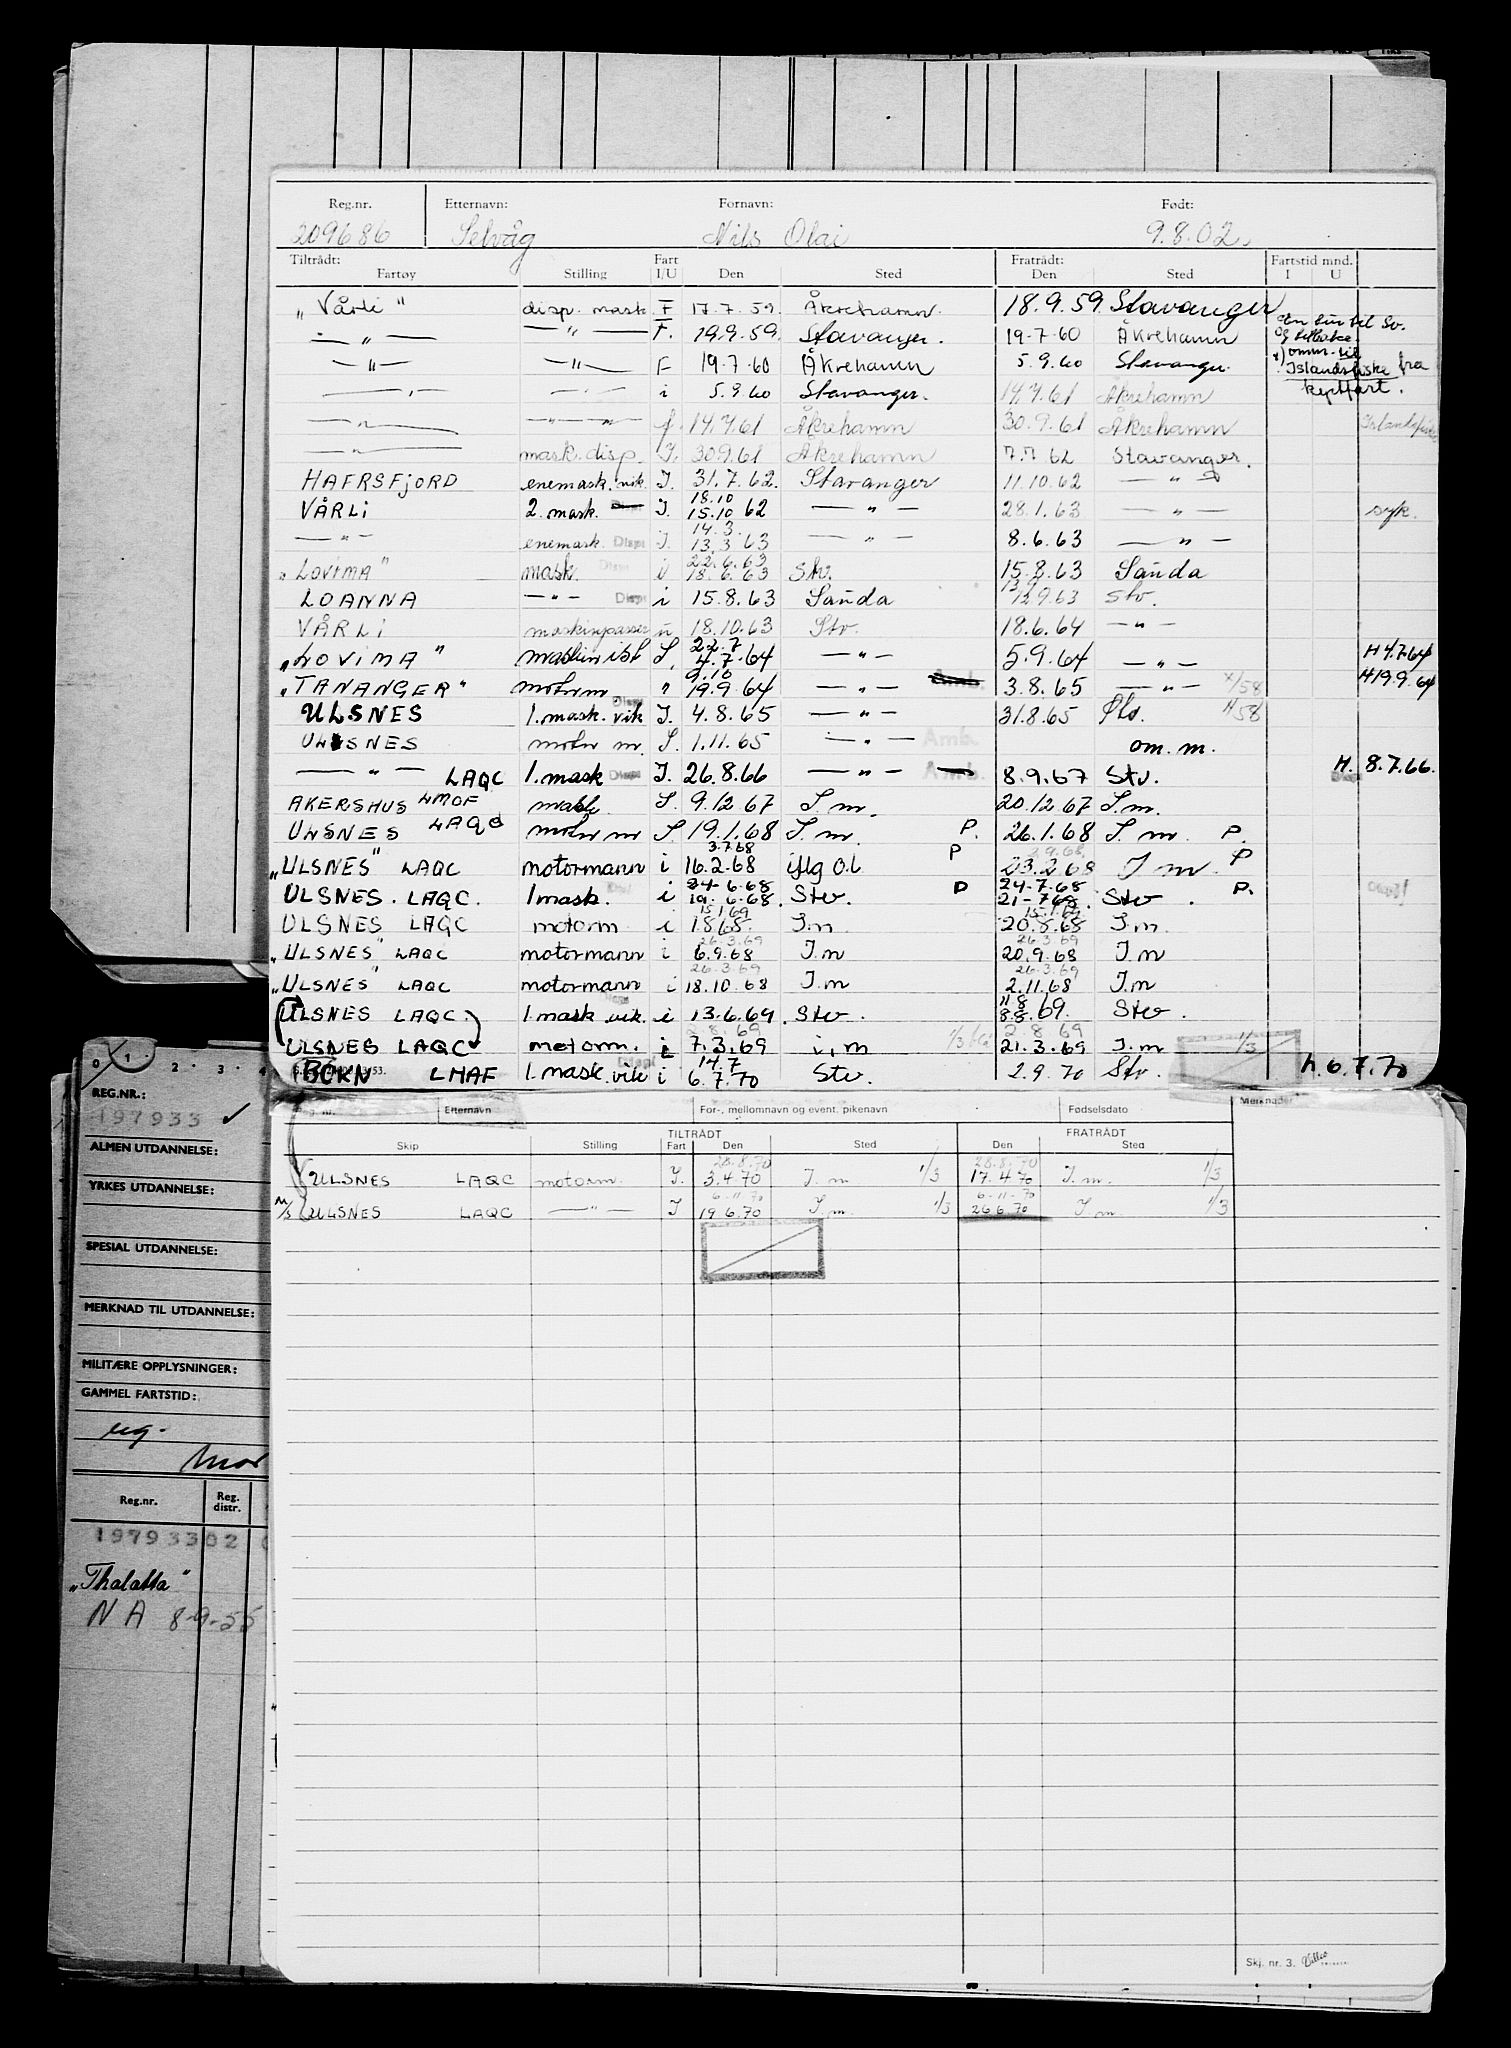 Reg.nr. Etternavn: Fornavn: Født:
209686 Selvåg Nils Olai 9.8.02.
Tiltrådt: Fartøy Stilling Fart I/U Den Sted Fratrådt: Den Sted Fartstid mnd. I U
„Vårli" disp. mask. F 17.7.59. Åkrehamn. 18.9.59. Stavanger
— „ — — „ — F. 19.9.59. Stavanger. 19-7-60 Åkrehamn
— „ — — „ — F 19.7.60 Åkrehamn 5.9.60 Stavanger.
Islandsfiske fra
— „ — — „ — i 5.9.60 Stavanger. 14.7.61 Åkrehamn
— „ — — „ — f. 14.7.61 Åkrehamn 30.9.61 Åkrehamn
— „ — mask. disp. I. 30.9.61 Åkrehamn 7.7.62 Stavanger.
HAFRSFJORD enemask. vik. I. 31.7.62. Stavanger 11.10.62 — „ —
18.10
VÅRLI 2. mask. I. 15.10 62 — „ — 28.1.63 — „ — syk.
14.3.
— „ — enemask. Disp I. 13.3.63 — „ — 8.6.63 — „ —
22.6.63
„LOVIMA" mask. Disp i 18.6.63 Stv. 15.8.63 Sauda
LOANNA — „ — Disp i 15.8.63 Sauda 12.9.63 Stv.
VÅRLI maskinpasser 18.10.63 Stv. 18.6.64 — „ —
22.7
„LOVIMA" I. 4.7.64 — „ — 5.9.64 — „ — H 4.7.64
9.10
„TANANGER" motorm „ 19.9.64 — „ — 3.8.65 — „ — H 19.9.64
ULSNES 1. mask. vik I. 4.8.65 — „ — 31.8.65
ULSNES motor m. I. 1.11.65 — „ — Amb. om. m.
— „ — LAQC 1. mask Disp I. 26.8.66 — „ — 8.9.67 Stv. H. 8.7.66.
AKERSHUS LMOF mask. I. 9.12 67 I. m. 20.12.67 I.m.
ULSNES LAQC motor m I. 19.1.68 I. m. P. 26.1.68 I. m. P.
3.7.68
„ULSNES" LAQC motormann i 16.2.68 iflg O.l P 23.2.68 I m P
24.6.68 24-7-68
ULSNES. LAQC. 1 mask. i 19.6.68. Stv. P 21-7 68. Stv. P.
15.1.69 15.1.69
ULSNES LAQC motorm i 1.8.68. I.m 20.8.68 I.m.
26.3.69 26.3.69
„ULSNES" LAQC motormann i 6.9.68 I.m 20.9.68 I.m
26.3.69 26.3.69
„ULSNES" LAQC motormann i 18.10.68 I.m 2.11.68 I.m
ULSNES LAQC. 1. mask vik. i 13.6.69. Stv. 8.8.69. Stv.
2.8.69 2.8 69
ULSNES LAQC motorm. i 7.3.69 i.m 21.3.69 I.m 1/3
14.7
BOKN LMAF 1. mask. vik i 6.7.70 Stv. 2.9.70 Stv. h. 6.7.70
Etternavn For-, mellomnavn og event. pikenavn Fødselsdato Merknader
TILTRÅDT FRATRÅDT
Skip Stilling Fart Den Sted Den Sted
28.8.70 28.8.70
ULSNES LAQC motorm. I. 3.4.70 I. m. 1/3 17.4.70 I. m. 1/3
6-11-70 6-11-70
M/S ULSNES LAQC — „ — I 19.6.70 I. m. 1/3 26.6.70 I. m. 1/3
Skj. nr. 3.
0 1 · 2 · 3 · 4
REG.NR.:
197933
ALMEN UTDANNELSE:
YRKES UTDANNELSE:
SPESIAL UTDANNELSE:
MERKNAD TIL UTDANNELSE:
MILITÆRE OPPLYSNINGER:
GAMMEL FARTSTID:
Reg.nr. Reg. distr.
19793302
„Thalatta"
NA 8-9-55